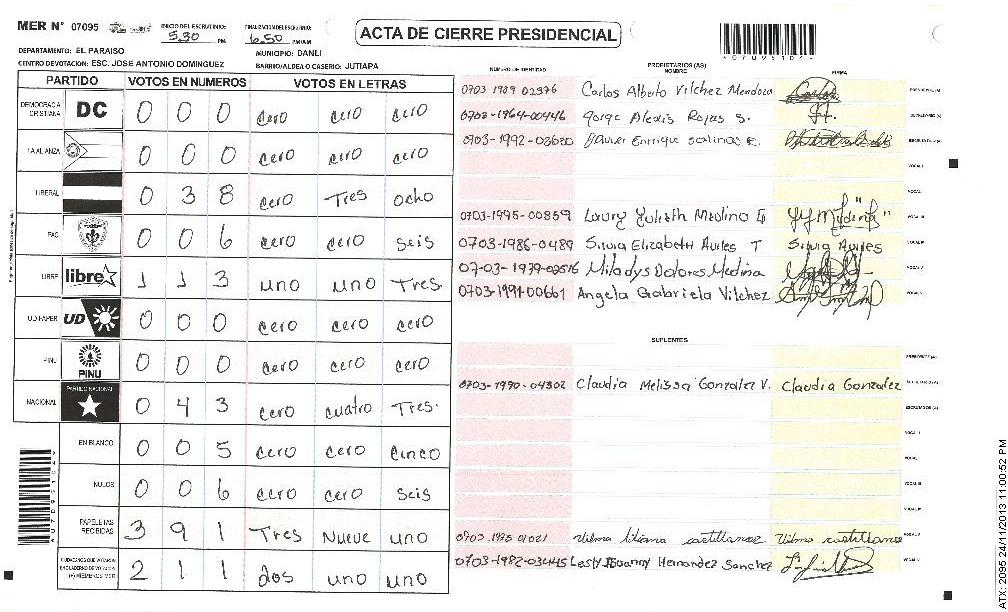 MER N° 07095
INICIO DEL ESCRUTINIO: 5.30 PM
FINALIZACION DEL ESCRUTINIO: 6.50 PM/AM
ACTA DE CIERRE PRESIDENCIAL
DEPARTAMENTO: EL PARAISO
MUNICIPIO: DANLI
CENTRO DE VOTACION: ESC. JOSE ANTONIO DOMINGUEZ
BARRIO/ALDEA O CASERIO: JUTIAPA
PARTIDO VOTOS EN NUMEROS VOTOS EN LETRAS
DEMOCRACIA CRISTIANA DC 0 0 0 cero cero cero
LA ALIANZA 0 0 0 cero cero cero
LIBERAL 0 3 8 cero Tres ocho
PAC 0 0 6 cero cero seis
LIBRE libre 1 1 3 uno uno Tres
UD FAPER UD 0 0 0 cero cero cero
PINU PINU 0 0 0 cero cero cero
NACIONAL PARTIDO NACIONAL 0 4 3 cero cuatro Tres.
EN BLANCO 0 0 5 cero cero cinco
NULOS 0 0 6 cero cero seis
PAPELETAS RECIBIDAS 3 9 1 Tres Nueve uno
CIUDADANOS QUE VOTARON 2 1 1 dos uno uno
NUMERO DE IDENTIDAD PROPIETARIOS (AS) NOMBRE FIRMA
0703 1989 02376 Carlos Alberto Vilchez Mendoza
0703-1964-00446 Jorge Alexis Rojas S.
0703-1992-03620 Javier Enrique Salinas E.
VOCAL I
VOCAL
0703-1995-00859 Laury Yulieth Medina
0703-1986-0489 Silvia Elizabeth Aviles T Silvia Aviles
07-03-1979-02516 Miladys Dolores Medina
0703-1991-00661 Angela Gabriela Vilchez
SUPLENTES
PRESIDENTE (A)
0703-1970-04302 Claudia Melissa Gonzalez V. Claudia Gonzalez
ESCRUTADOR (A)
VOCAL I
VOCAL
VOCAL
0703 1975 01021 Vilma liliana castillanoz Vilma castillanoz
0703-1982-03445 Lesly Hernandez Sanchez
ATX: 2095 24/11/2013 11:00:52 PM